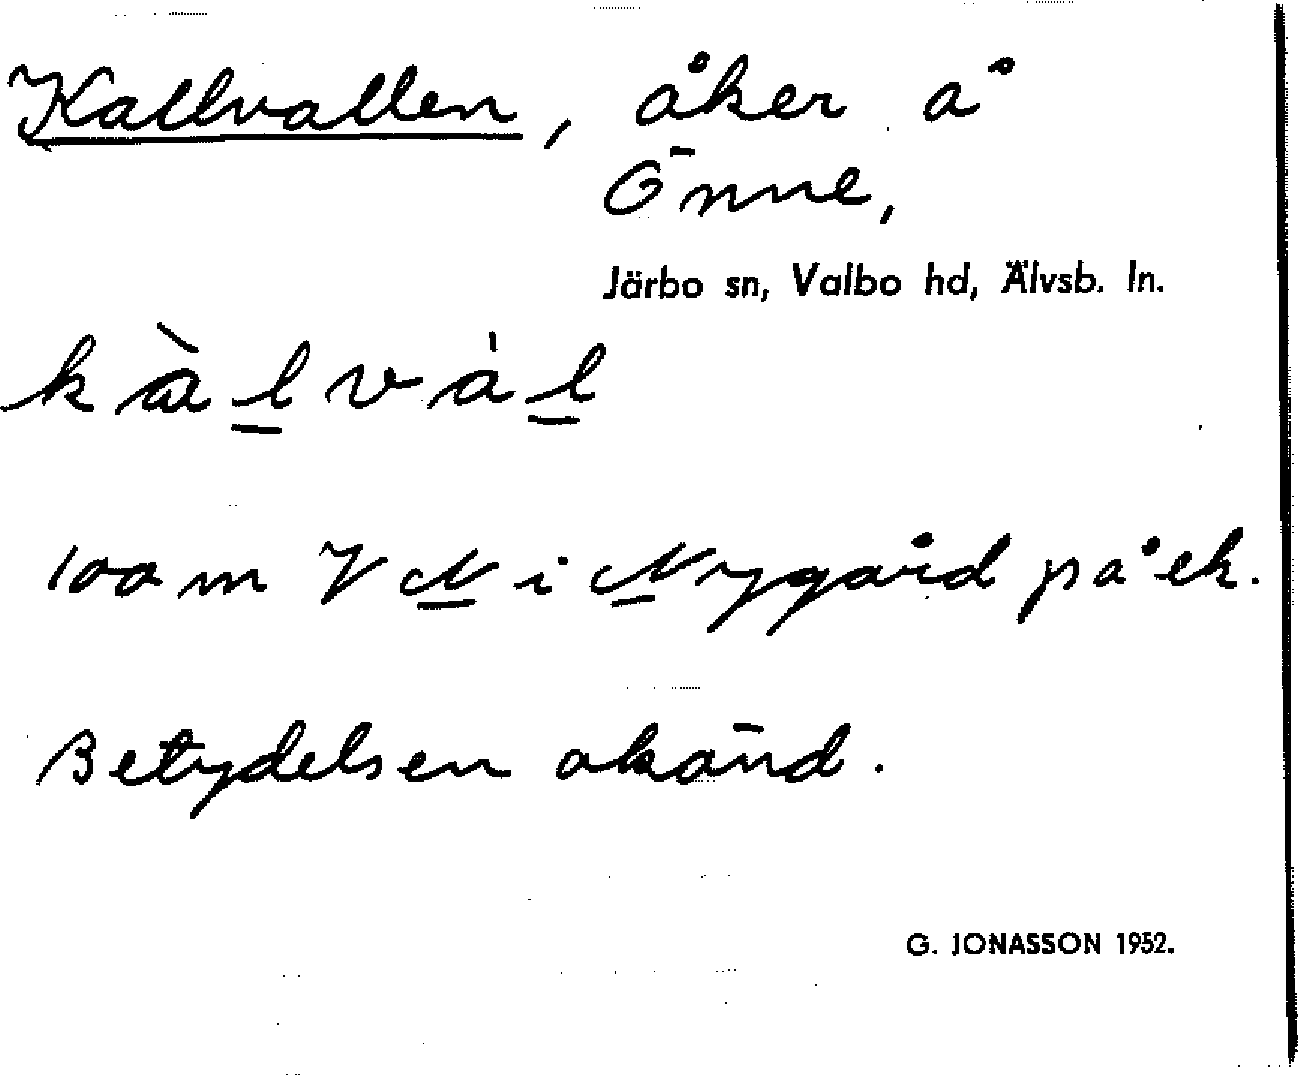 Kallvallen, åker å
Önne,
Järbo sn, Valbo hd, Älvsb. ln.
kàlvál
100 m V N i Nygård på ek.
Betydelsen okänd.
G. JONASSON 1952.